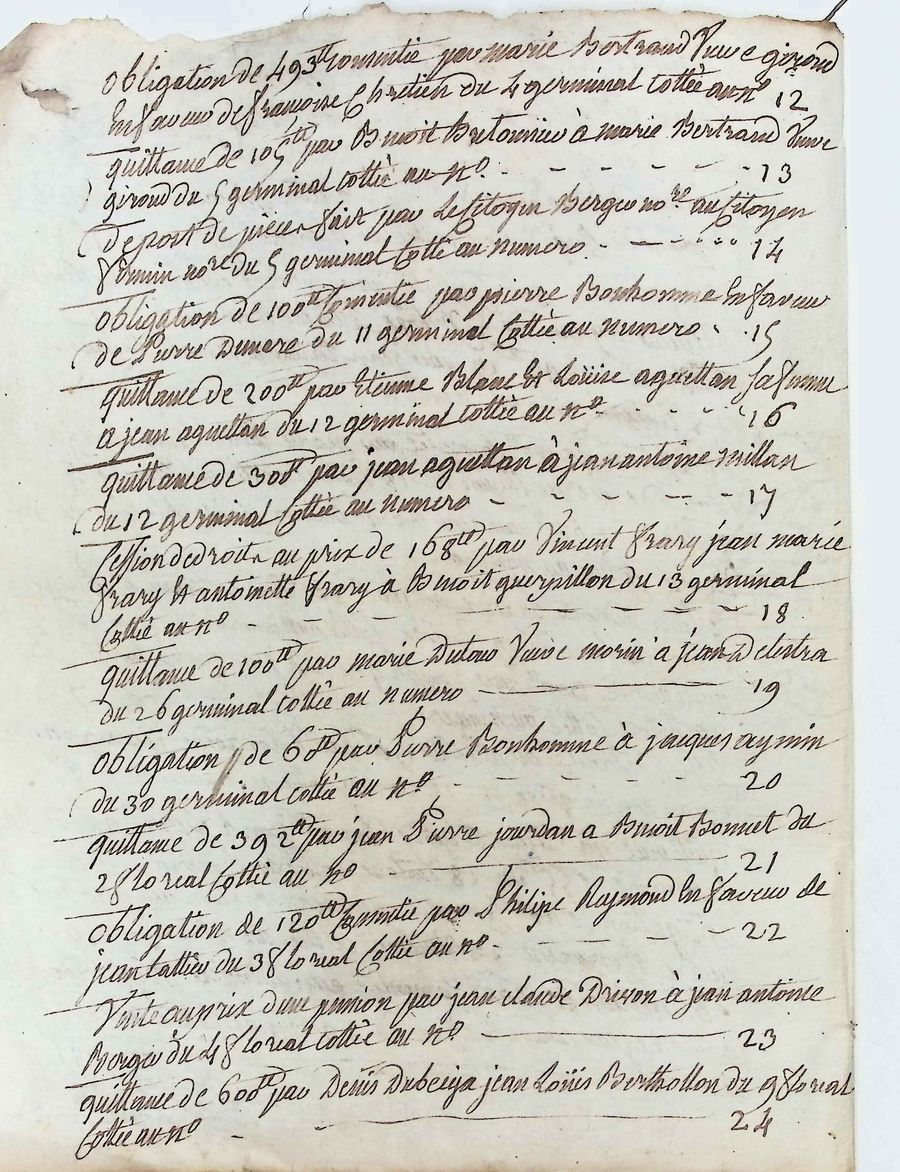 obligation de 493tt consentie par marie Bertrand Veuve giroud
En faveur de francoise Chretien du 4 germinal cottée au no 12
quittance de 105tt par Benoit Bretonniere à marie Bertrand Veuve
giroud du 5 germinal cottée au no - - - - - 13
deport de pieces fait par Le Citoyen Berger nore au Citoyen
firmin nore du 5 germinal Cottée au numero - - - 14
obligation de 100tt Consentie par pierre Bonhomme En faveur
de Pierre du 11 germinal Cottée au numero . . 15
quittance de 200tt par Etienne Blanc Et Loüise aguettan sa femme
a jean aguettan du 12 germinal Cottée au no - - - - 16
quittance de 300tt par jean aguettan à jean antoine millan
du 12 germinal Cottée au numero - - - - - 17
Cession de droits au prix de 168tt par Vincent frary jean marie
frary Et antoinette frary à Benoit guerpillon du 13 germinal
Cottée au no - - - - - - - 18
quittance de 100tt par marie Dutour Veuve morin a jean Delestra
du 26 germinal cottée au numero - 19
obligation de 68tt par Pierre Bonhomme à jacques aymin
du 30 germinal cottée au no - - - - 20
quittance de 392tt par jean Pierre jourdan a Benoit Bonnet du
2 floreal Cottée au no - 21
obligation de 120tt Consentie par Philipe Raymond En faveur de
jean du 3 floreal Cottée au no - - - - 22
Vente au prix d'une pension par jean claude Drivon à jean antoine
Berger du 4 floreal cottée au no - 23
quittance de 600tt par Denis jean Loüis Berthollon du 9 floreal
Cottée au no - - 24